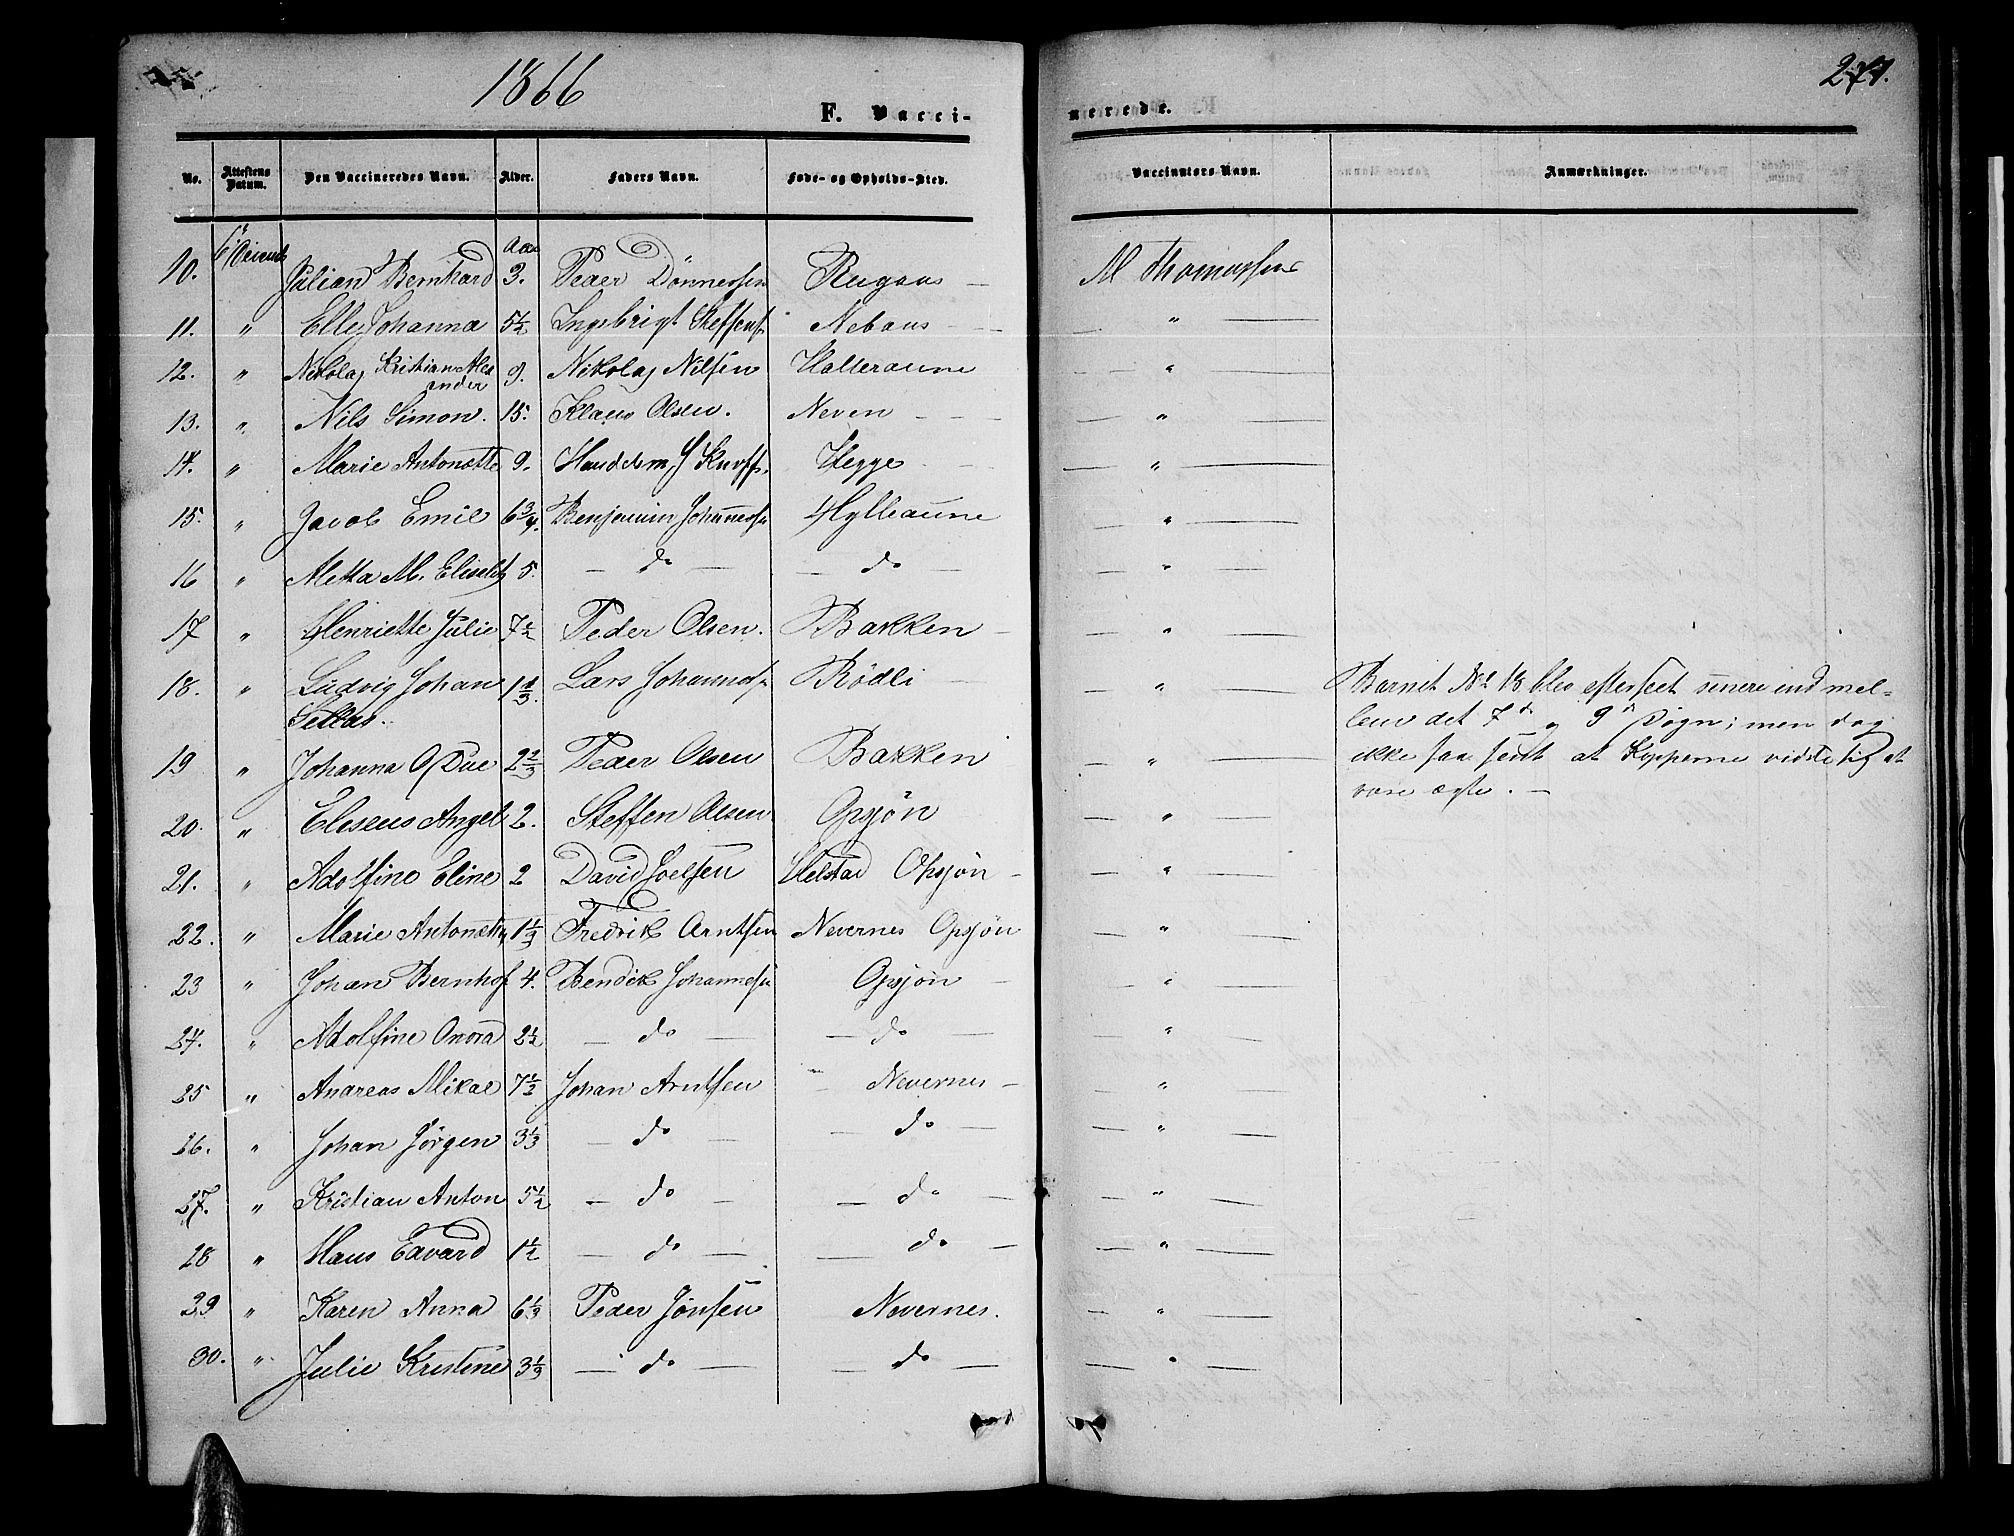 1866
271.
F. Vacci-
nerede.
No. Attestens Datum. Den Vaccineredes Navn. Alder. Faders Navn. Føde- og Opholds-Sted. Vaccinators Navn. Anmærkninger.
10. Julian Bernhard 3. Peder Dönnessen Rugaas — M Thomassen
11. " Elle Johanna 5½ Ingebrigt Steffens. Nebaus — " —
12. " Nikolaj Kristian Alex 9. Nikolaj Nilsen Halteraune — " —
ander
13. " Nils Simon. 15. Klaus Olsen. Neven — " —
14. " Marie Antonette 9. Handelsm. J Knoff. Hegge — " —
15. " Jacob Emil 6¾. Benjamin Johannessn Hylleaune — " —
16 " Metta M. Elisabth 5. — do — — do — — " —
17 " Henriette Julie 7½ Peder Olsen. Bakken — — " —
18. " Ludvig Johan 1⅓. Lars Johannes. Rödli — — " — Barnet No 18 blev efterseet senere ind mel-
lem det 7de og 9de Døgn; men dog
19 " Johanna O Due 2⅔ Peder Olsen Bakken — " — ikke saa sent at Kopperne
være ægte. —
20. " Eliseus Angel 2. Steffen Olsen Opsjön — " —
21. " Adolfine Eline 2 David Joelsen Helstad Opsjön — — " —
22. " Marie Antonette 1⅓ Fredrik Arntsen Nevernes Opsjön — " —
23 " Johan Bernhof 4. Bendik Johannessn Opsjön — — " —
24. " Adolfine Onora 2½ — do — — do — — " —
25 " Andreas Mikal 7½ Johan Arntsen — Nevernes — — " —
26. " Johan Jörgen 3⅓ — do — — do — — " —
27. " Kristian Anton 5½ — do — — do — — " —
28 " Hans Edvard 1½ — do — — do — — " —
29 " Karen Anna 6⅓ Peder Jonsen Nevernes. — " —
30. " Julie Kristine 3⅓ — do — — do — — " —